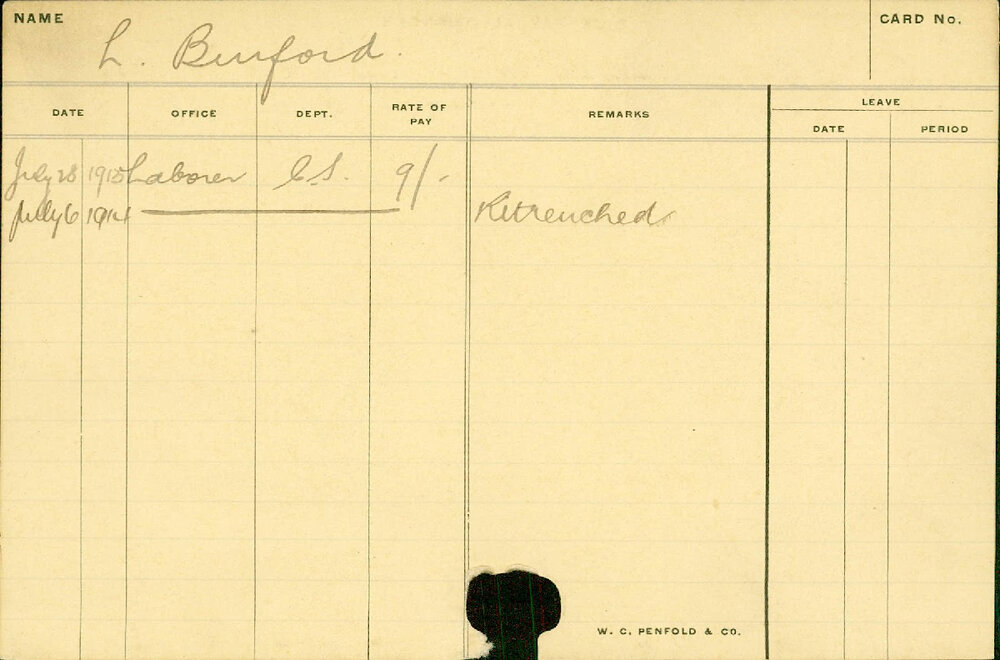 NAME
CARD No.
L. Binford.
DATE OFFICE DEPT. RATE OF PAY REMARKS LEAVE
DATE PERIOD
July 28 Laborer C.S. 9/-
July 6 1914 Retrenched
W. C. PENFOLD & CO.